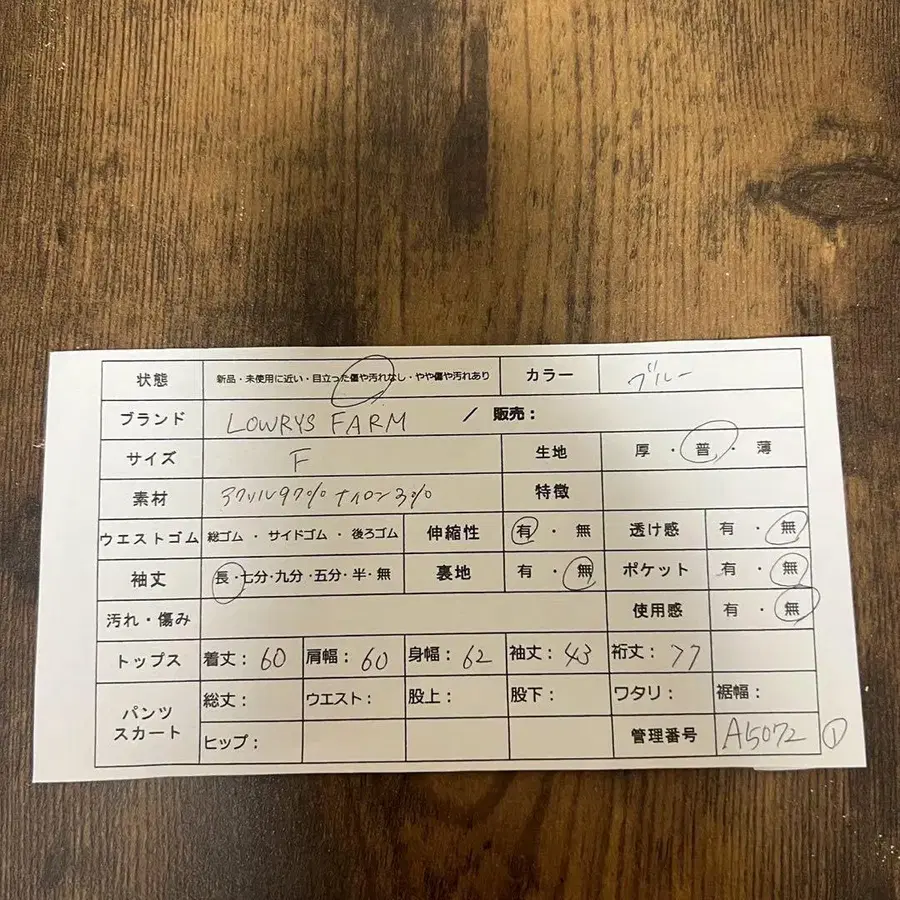 状態 新品・未使用に近い・目立った傷や汚れなし・やや傷や汚れあり カラー ブルー
ブランド LOWRYS FARM / 販売：
サイズ F 生地 厚・普・薄
素材 アクリル97% ナイロン3% 特徴
ウエストゴム 総ゴム・サイドゴム・後ろゴム 伸縮性 有・無 透け感 有・無
袖丈 長・七分・九分・五分・半・無 裏地 有・無 ポケット 有・無
汚れ・傷み 使用感 有・無
トップス 着丈：60 肩幅：60 身幅：62 袖丈：43 裄丈：77
パンツ スカート 総丈： ウエスト： 股上： 股下： ワタリ： 裾幅：
ヒップ： 管理番号 A15072 ①